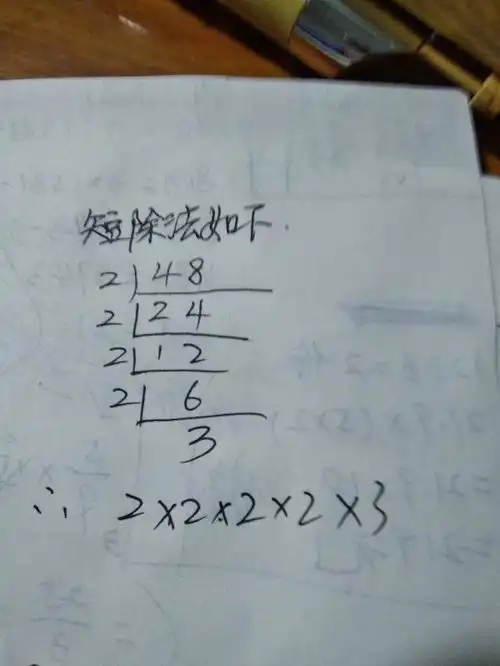 短除法如下.
2 48
2 24
2 12
2 6
3
∴ 2×2×2×2×3